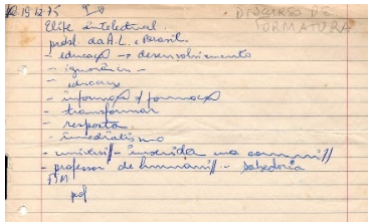 19.12.75
DISCURSO DE FORMATURA
Elite intelectual
probl. da A.L. e Brasil.
- educação → desenvolvimento
- ignorância -
- educar
- informação / formação
- transformar
- resposta
- imediatismo
- universi// - inserida na comuni//
- professor de humani// - sabedoria
prof